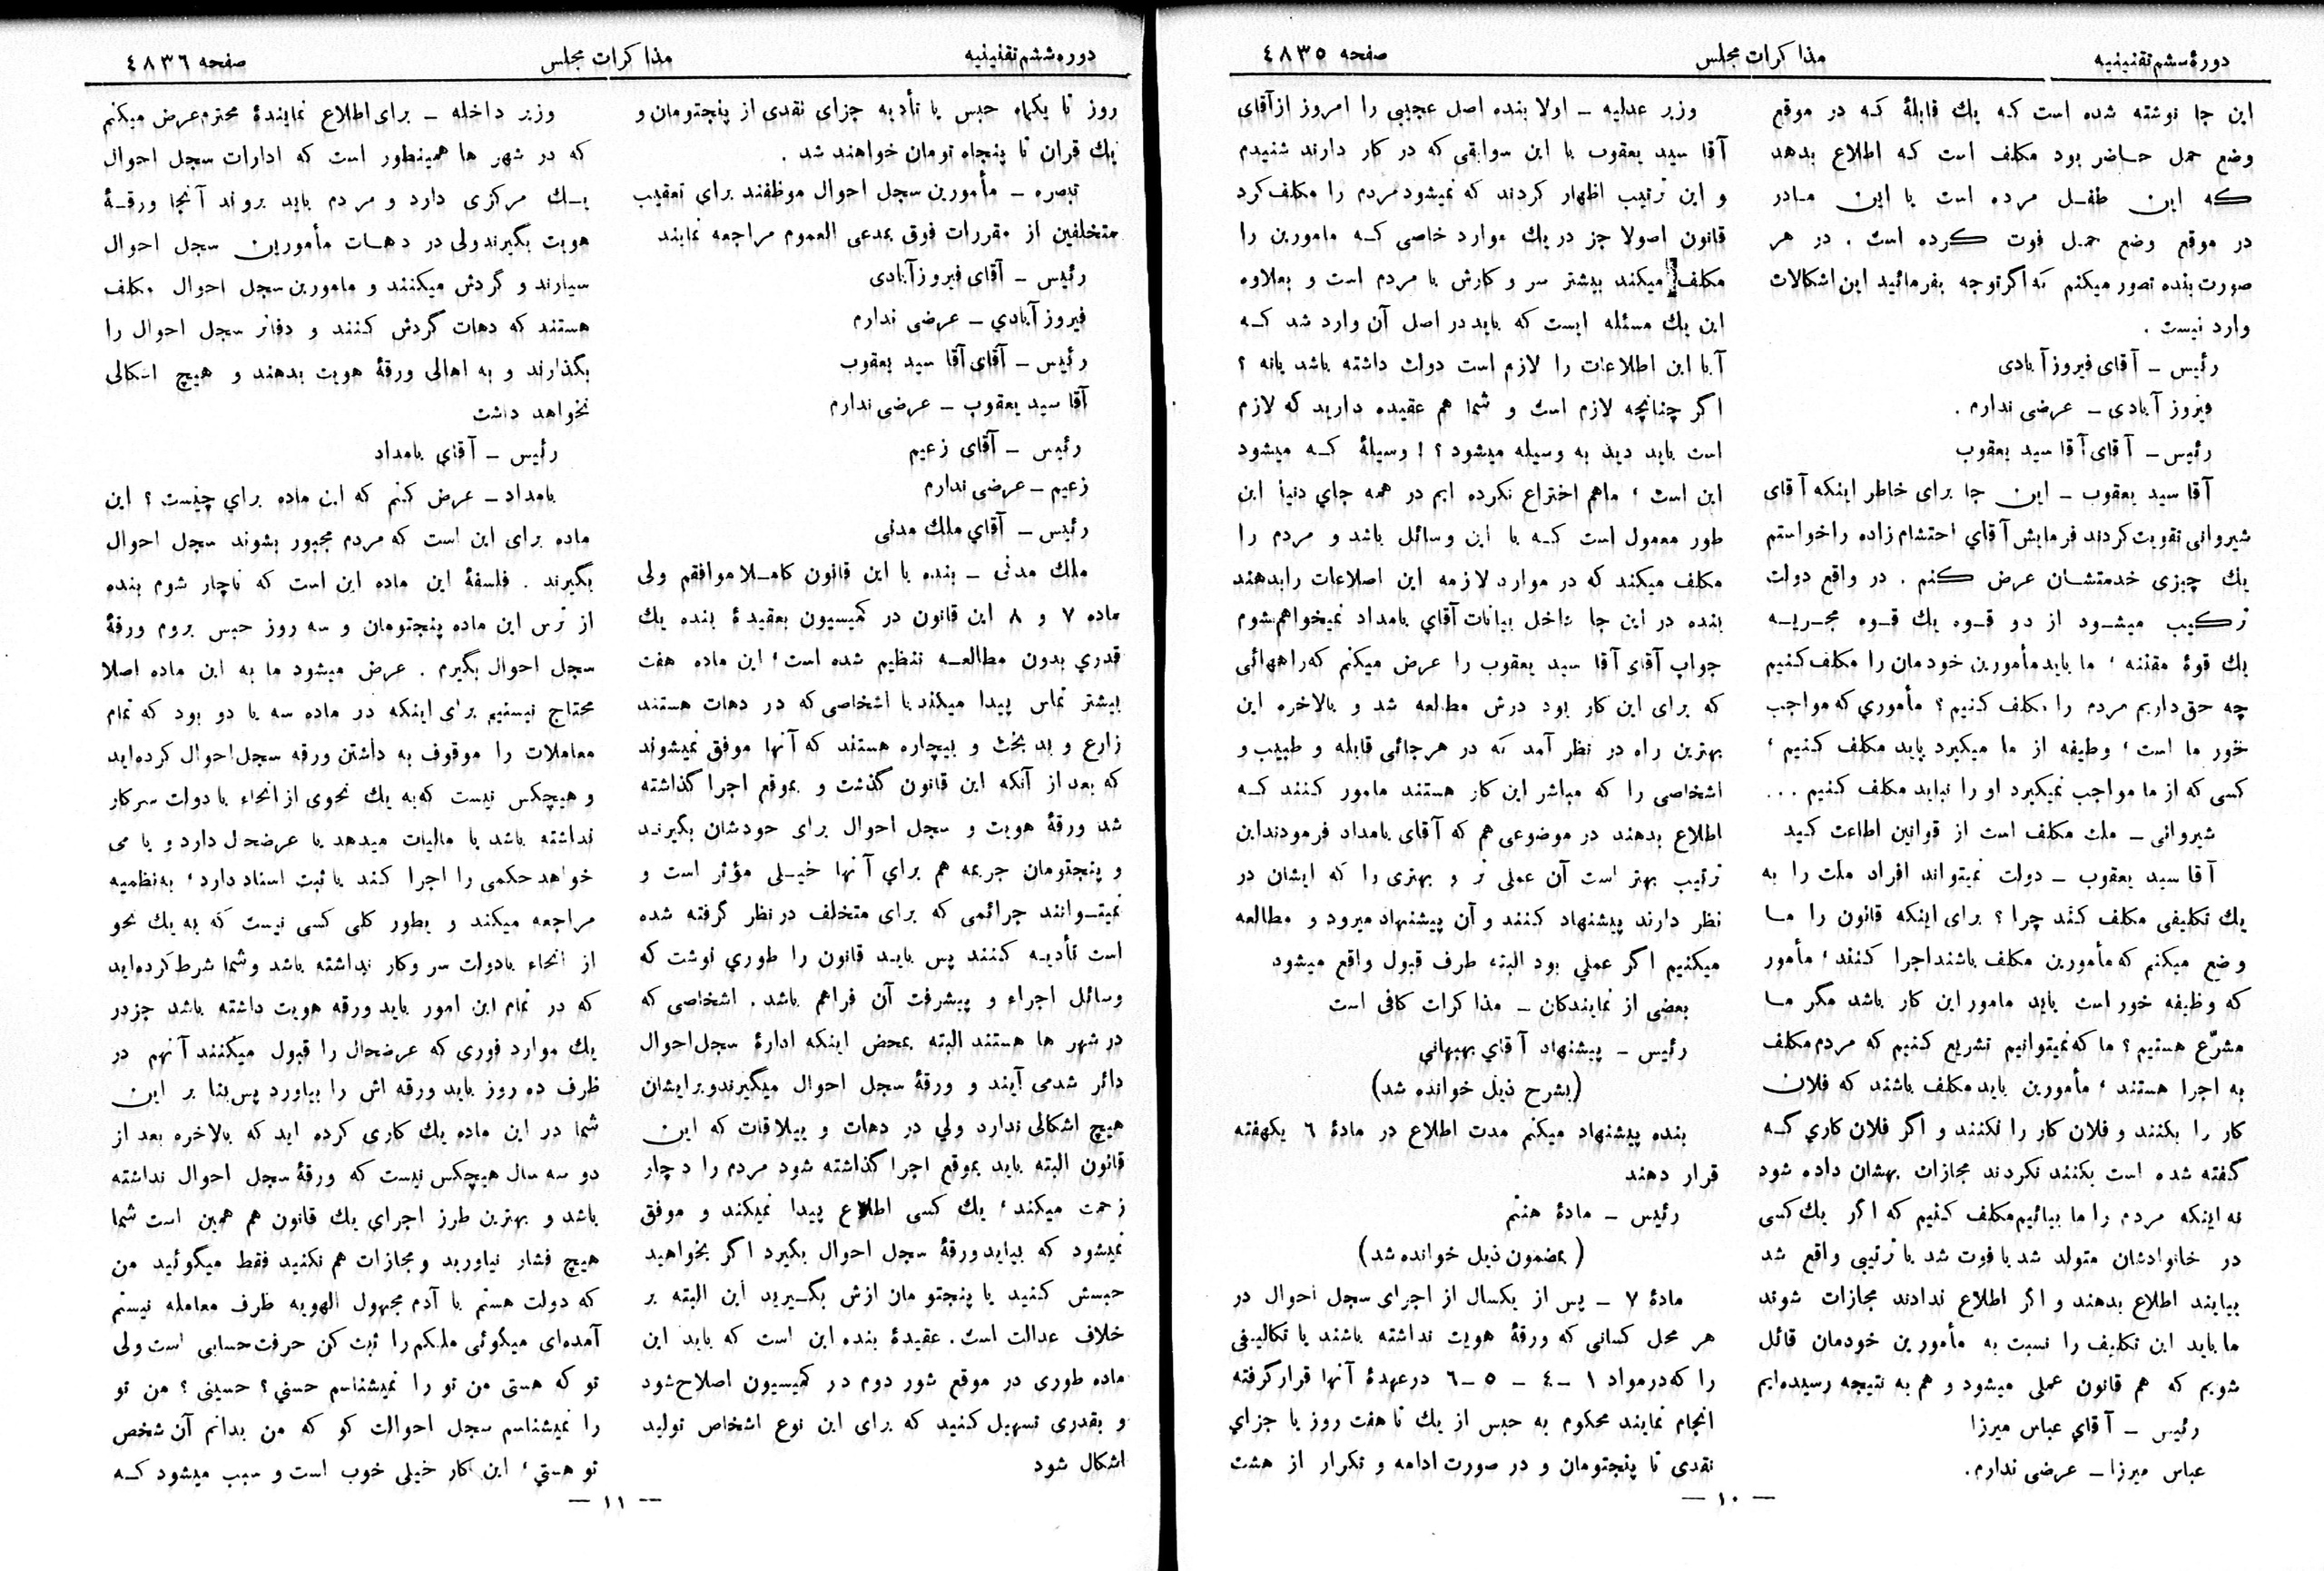 دورهٔ ششم تقنینیه
مذاکرات مجلس
صفحه ٤٨٣٥
این جا نوشته شده است که یك قابلهٔ که در موقع
وضع حمل حاضر بود مکلف است که اطلاع بدهد
که این طفل مرده است یا این مادر
در موقع وضع حمل فوت کرده است . در هر
صورت بنده تصور میکنم که اگر توجه بفرمائید این اشکالات
وارد نیست .
رئیس ـ آقای فیروز آبادی
فیروز آبادی ـ عرضی ندارم .
رئیس ـ آقای آقا سید یعقوب
آقا سید یعقوب ـ این جا برای خاطر اینکه آقای
شیروانی تقویت کردند فرمایش آقاي احتشام زاده را خواستم
یك چیزی خدمتشان عرض کنم . در واقع دولت
ترکیب میشود از دو قوه یك قوه مجریه
یك قوهٔ مقننه ، ما باید مأمورین خودمان را مکلف کنیم
چه حق داریم مردم را مکلف کنیم ؟ مأموري که مواجب
خور ما است ، وظیفه از ما میگیرد باید مکلف کنیم ،
کسی که از ما مواجب نمیگیرد او را نباید مکلف کنیم ...
شیروانی ـ ملت مکلف است از قوانین اطاعت کند
آقا سید یعقوب ـ دولت نمیتواند افراد ملت را به
یك تکلیفی مکلف کند چرا ؟ برای اینکه قانون را ما
وضع میکنم که مأمورین مکلف باشند اجرا کنند ، مأمور
که وظیفه خور است باید مامور این کار باشد مگر ما
مشرّع هستیم ؟ ما که نمیتوانیم تشریع کنیم که مردم مکلف
به اجرا هستند ، مأمورین باید مکلف باشند که فلان
کار را بکنند و فلان کار را نکنند و اگر فلان کاري که
گفته شده است بکنند نکردند مجازات بهشان داده شود
نه اینکه مردم را ما بیائیم مکلف کنیم که اگر یك کسی
در خانوادشان متولد شد یا فوت شد یا ترتیبی واقع شد
بیایند اطلاع بدهند و اگر اطلاع ندادند مجازات شوند
ما باید این تکلیف را نسبت به مأمورین خودمان قائل
شویم که هم قانون عملی میشود و هم به نتیجه رسیده‌ایم
رئیس ـ آقاي عباس میرزا
عباس میرزا ـ عرضی ندارم.
وزیر عدلیه ـ اولا بنده اصل عجیبی را امروز از آقای
آقا سید یعقوب با این سوابقی که در کار دارند شنیدم
و این ترتیب اظهار کردند که نمیشود مردم را مکلف کرد
قانون اصولا جز در یك موارد خاصی که مامورین را
مکلف میکند بیشتر سر و کارش با مردم است و بعلاوه
این یك مسئله ایست که باید در اصل آن وارد شد که
آیا این اطلاعات را لازم است دولت داشته باشد یانه ؟
اگر چنانچه لازم است و شما هم عقیده دارید که لازم
است باید دید به وسیله میشود ؟ ! وسیلهٔ که میشود
این است ، ماهم اختراع نکرده ایم در همه جاي دنیا این
طور معمول است که با این وسائل باشد و مردم را
مکلف میکند که در موارد لازمه این اصلاعات را بدهند
بنده در این جا داخل بیانات آقاي بامداد نمیخواهم بشوم
جواب آقای آقا سید یعقوب را عرض میکنم که راههائی
که برای این کار بود درش مطالعه شد و بالاخره این
بهترین راه در نظر آمد که در هرجائی قابله و طبیب و
اشخاصی را که مباشر این کار هستند مامور کنند که
اطلاع بدهند در موضوعی هم که آقای بامداد فرمودند این
ترتیب بهتر است آن عملی تر و بهتری را که ایشان در
نظر دارند پیشنهاد کنند و آن پیشنهاد میرود و مطالعه
میکنیم اگر عملي بود البته طرف قبول واقع میشود
بعضی از نمایندکان ـ مذاکرات کافی است
رئیس ـ پیشنهاد آقاي بهبهاني
(بشرح ذیل خوانده شد)
بنده پیشنهاد میکنم مدت اطلاع در مادهٔ ٦ یکهفته
قرار دهند
رئیس ـ مادهٔ هفتم
( بمضمون ذیل خوانده شد)
مادهٔ ٧ ـ پس از یکسال از اجرای سجل احوال در
هر محل کسانی که ورقهٔ هویت نداشته باشند یا تکالیفی
را که در مواد ١ ـ٤ ـ ٥ ـ٦ در عهدهٔ آنها قرار گرفته
انجام نمایند محکوم به حبس از یك تا هفت روز یا جزاي
نقدی تا پنجتومان و در صورت ادامه و تکرار از هشت
— ١٠ —
دوره ششم تقنینیه
مذاکرات مجلس
صفحه ٤٨٣٦
روز تا یکماه حبس یا تأدیه جزای نقدی از پنجتومان و
یك قران تا پنجاه تومان خواهند شد .
تبصره ـ مأمورین سجل احوال موظفند برای تعقیب
متخلفین از مقررات فوق بمدعی العموم مراجعه نمایند
رئیس ـ آقای فیروزآبادی
فیروز آبادي ـ عرضی ندارم
رئیس ـ آقای آقا سید یعقوب
آقا سید یعقوب ـ عرضی ندارم
رئیس ـ آقای زعیم
زعیم ـ عرضی ندارم
رئیس ـ آقاي ملك مدنی
ملك مدنی ـ بنده با این قانون کاملا موافقم ولی
ماده ٧ و ٨ این قانون در کمیسیون بعقیدهٔ بنده یك
قدري بدون مطالعه تنظیم شده است ، این ماده هفت
بیشتر تماس پیدا میکند با اشخاصی که در دهات هستند
زارع و بد بخت و بیچاره هستند که آنها موفق نمیشوند
که بعد از آنکه این قانون گذشت و بموقع اجرا گذاشته
شد ورقهٔ هویت و سجل احوال برای خودشان بگیرند
و پنجتومان جریمه هم براي آنها خیلی مؤثر است و
نمیتوانند جرائمی که برای متخلف در نظر گرفته شده
است تأدیه کنند پس باید قانون را طوري نوشت که
وسائل اجراء و پیشرفت آن فراهم باشد . اشخاصی که
در شهر ها هستند البته بمحض اینکه ادارهٔ سجل احوال
دائر شد می آیند و ورقهٔ سجل احوال میگیرند و برایشان
هیچ اشکالی ندارد ولي در دهات و ییلاقات که این
قانون البته باید بموقع اجرا گذاشته شود مردم را دچار
زحمت میکند ، یك کسی اطلاع پیدا نمیکند و موفق
نمیشود که بیاید ورقهٔ سجل احوال بگیرد اگر بخواهید
حبسش کنید یا پنجتومان ازش بگیرید این البته بر
خلاف عدالت است . عقیدهٔ بنده این است که باید این
ماده طوری در موقع شور دوم در کمیسیون اصلاح شود
و بقدری تسهیل کنید که برای این نوع اشخاص تولید
اشکال شود
وزیر داخله ـ برای اطلاع نمایندهٔ محترم عرض میکنم
که در شهر ها همینطور است که ادارات سجل احوال
یك مرکزی دارد و مردم باید بروند آنجا ورقهٔ
هویت بگیرند ولی در دهات مأمورین سجل احوال
سیارند و گردش میکنند و مامورین سجل احوال مکلف
هستند که دهات گردش کنند و دفاتر سجل احوال را
بگذارند و به اهالی ورقهٔ هویت بدهند و هیچ اشکالی
نخواهد داشت
رئیس ـ آقاي بامداد
بامداد ـ عرض کنم که این ماده براي چیست ؟ این
ماده برای این است که مردم مجبور بشوند سجل احوال
بگیرند . فلسفهٔ این ماده این است که ناچار شوم بنده
از ترس این ماده پنجتومان و سه روز حبس بروم ورقهٔ
سجل احوال بگیرم . عرض میشود ما به این ماده اصلا
محتاج نیستیم برای اینکه در ماده سه یا دو بود که تمام
معاملات را موقوف به داشتن ورقه سجل احوال کرده‌اید
و هیچکس نیست که به یك نحوی از انحاء با دولت سرکار
نداشته باشد یا مالیات میدهد یا عرضحال دارد و یا می
خواهد حکمی را اجرا کند یا ثبت اسناد دارد ، به نظمیه
مراجعه میکند و بطور کلی کسی نیست که به یك نحو
از انحاء بادولت سر وکار نداشته باشد و شما شرط کرده‌اید
که در تمام این امور باید ورقه هویت داشته باشد جز در
یك موارد فوری که عرضحال را قبول میکنند آنهم در
ظرف ده روز باید ورقه اش را بیاورد پس بنا بر این
شما در این ماده یك کاری کرده اید که بالاخره بعد از
دو سه سال هیچکس نیست که ورقهٔ سجل احوال نداشته
باشد و بهترین طرز اجرای یك قانون هم همین است شما
هیچ فشار نیاورید و مجازات هم نکنید فقط میگوئید من
که دولت هستم با آدم مجهول الهویه طرف معامله نیستم
آمده‌ای میگوئی ملکم را ثبت کن حرفت حسابی است ولی
تو که هستی من تو را نمیشناسم حسني ؟ حسینی ؟ من تو
را نمیشناسم سجل احوالت کو که من بدانم آن شخص
تو هستي ، این کار خیلی خوب است و سبب میشود که
— ١١ —